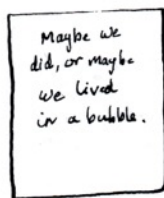 Maybe we
did, or maybe
we lived
in a bubble.